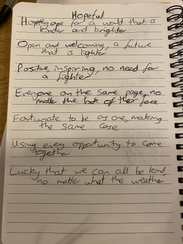 Hopeful
Hope for a world that is
kinder and brighter
Open and welcoming, a future
that is lighter
Positive inspiring, no need for
a fighter
Everyone on the same page, no
matter the look of their face
Fortunate to be as one, making
the same case
Using every opportunity to come
together
Lucky that we can all be kind,
no matter what the weather